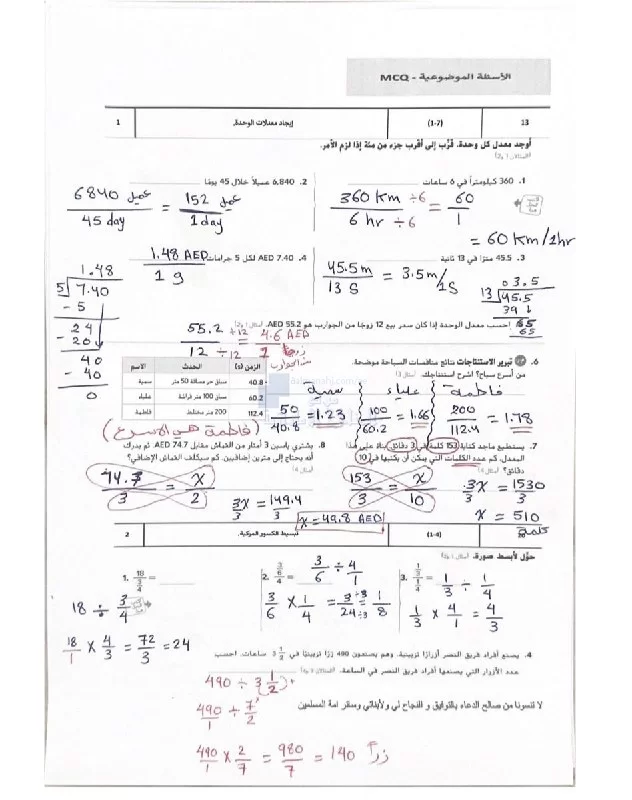 الأسئلة الموضوعية - MCQ
1 إيجاد معدلات الوحدة. (1-7) 13
أوجد معدل كل وحدة. قرّب إلى أقرب جزء من مئة إذا لزم الأمر.
1. 360 كيلومتراً في 6 ساعات
360 Km ÷6 / 6 hr ÷6 = 60 / 1
= 60 Km/1hr
2. 6,840 عميلاً خلال 45 يومًا
6840 عميل / 45 day = 152 عميل / 1 day
3. 45.5 مترًا في 13 ثانية
45.5 m / 13 S = 3.5 m/1S
03.5
13 45.5
39
65
65
4. AED 7.40 لكل 5 جرامات
1.48 AED / 1 g
1.48
5 7.40
- 5
24
- 20
40
- 40
0
احسب معدل الوحدة إذا كان سعر بيع 12 زوجًا من الجوارب هو AED 55.2.
55.2 ÷12 / 12 ÷12 = 4.6 AED / 1
من الجوارب
6. تبرير الاستنتاجات نتائج منافسات السباحة موضحة.
من أسرع سباح؟ اشرح استنتاجك.
الاسم الحدث الزمن (s)
سمية سباق حر مسافة 50 متر 40.8
علياء سباق 100 متر فراشة 60.2
فاطمة 200 متر مختلط 112.4
سمية علياء فاطمة
50 / 40.8 = 1.23
100 / 60.2 = 1.66
200 / 112.4 = 1.78
(فاطمة هي الاسرع)
7. يستطيع ماجد كتابة 153 كلمة في 3 دقائق. بناءً على هذا
المعدل، كم عدد الكلمات التي يمكن أن يكتبها في 10
دقائق؟
153 / 3 = x / 10
3x / 3 = 1530 / 3
x = 510
كلمة
8. يشتري ياسين 3 أمتار من القماش مقابل AED 74.7. ثم يدرك
أنه يحتاج إلى مترين إضافيين. كم سيكلف القماش الإضافي؟
74.7 / 3 = x / 2
3x / 3 = 149.4 / 3
x = 49.8 AED
2 تبسيط الكسور المركبة. (1-4)
حوّل لأبسط صورة.
1. 18 / 3/4 =
18 ÷ 3/4
18/1 × 4/3 = 72/3 = 24
2. 3/6 / 4 =
3/6 ÷ 4/1
3/6 × 1/4 = 3 ÷3 / 24 ÷3 = 1/8
3. 1/3 / 1/4 = 1/3 ÷ 1/4
1/3 × 4/1 = 4/3
4. يصنع أفراد فريق النصر أزرارًا تزيينية. وهم يصنعون 490 زرًا تزيينيًا في 3 1/2 ساعات. احسب
عدد الأزرار التي يصنعها أفراد فريق النصر في الساعة.
490 ÷ 3 1/2
490/1 ÷ 7/2
لا تنسونا من صالح الدعاء بالتوفيق و النجاح لي ولأبنائي وسائر امة المسلمين
490/1 × 2/7 = 980/7 = 140 زراً